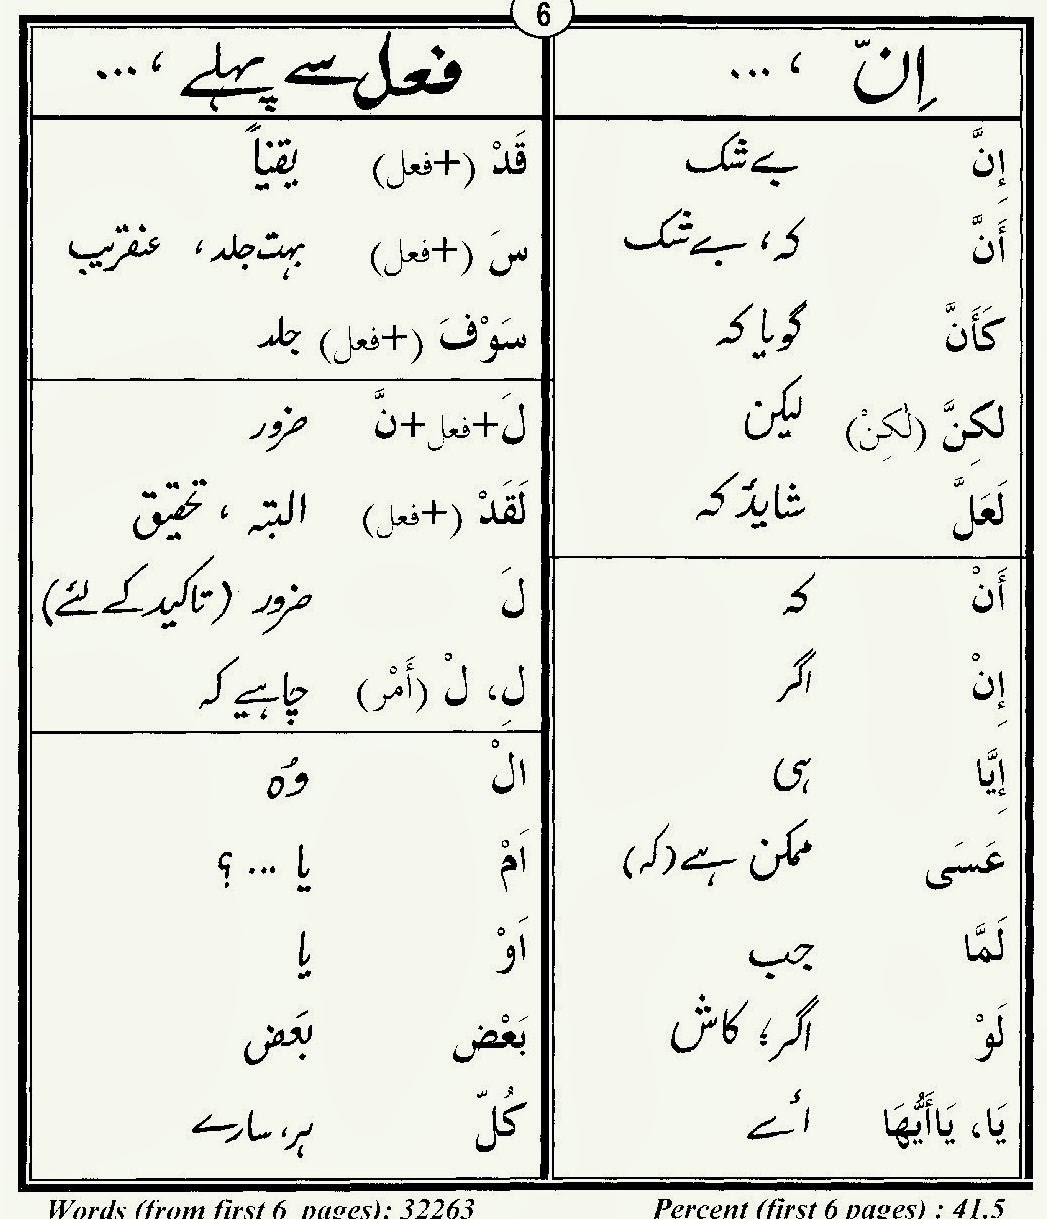 6
اِنّ ، ...
إِنَّ بے شک
أَنَّ کہ، بے شک
كَأَنَّ گویا کہ
لٰكِنَّ (لٰكِنْ) لیکن
لَعَلَّ شاید کہ
أَنْ کہ
إِنْ اگر
إِيَّا ہی
عَسَى ممکن ہے (کہ)
لَمَّا جب
لَوْ اگر؛ کاش
يَا، يَاأَيُّهَا اے
فعل سے پہلے ، ...
قَدْ (+فعل) یقیناً
سَ (+فعل) بہت جلد، عنقریب
سَوْفَ (+فعل) جلد
لَ+فعل+نَّ ضرور
لَقَدْ (+فعل) البتہ ، تحقیق
لَ ضرور (تاکید کے لئے)
لِ، لْ (أَمْر) چاہیے کہ
الْ وُہ
اَمْ یا ...؟
اَوْ یا
بَعْض بَعَض
كُلّ ہر، سارے
Words (from first 6 pages): 32263
Percent (first 6 pages) : 41.5